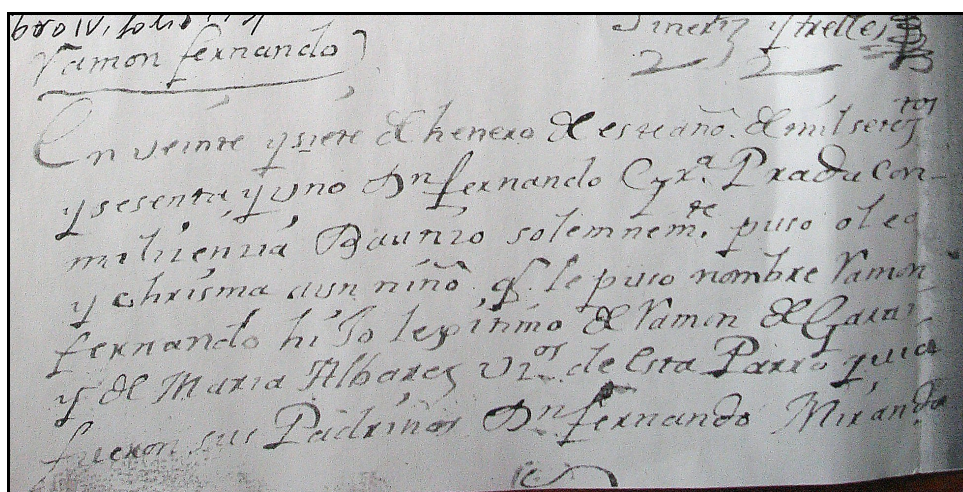 Ramon fernando
En veinte y siete de henero de este año. de mil setez.tos
y sesenta y uno Dn fernando Cyr.a Pradu con
mi lizenzia Bautizo solemnem.te puso oleo
y chrisma aun niño q.e le puso nombre Ramon
fernando hijo lexitimo de Ramon de Garai
y de Maria Albarez vz.os de Esta Parroquia
fueron sus Padrinos Dn fernando Miranda